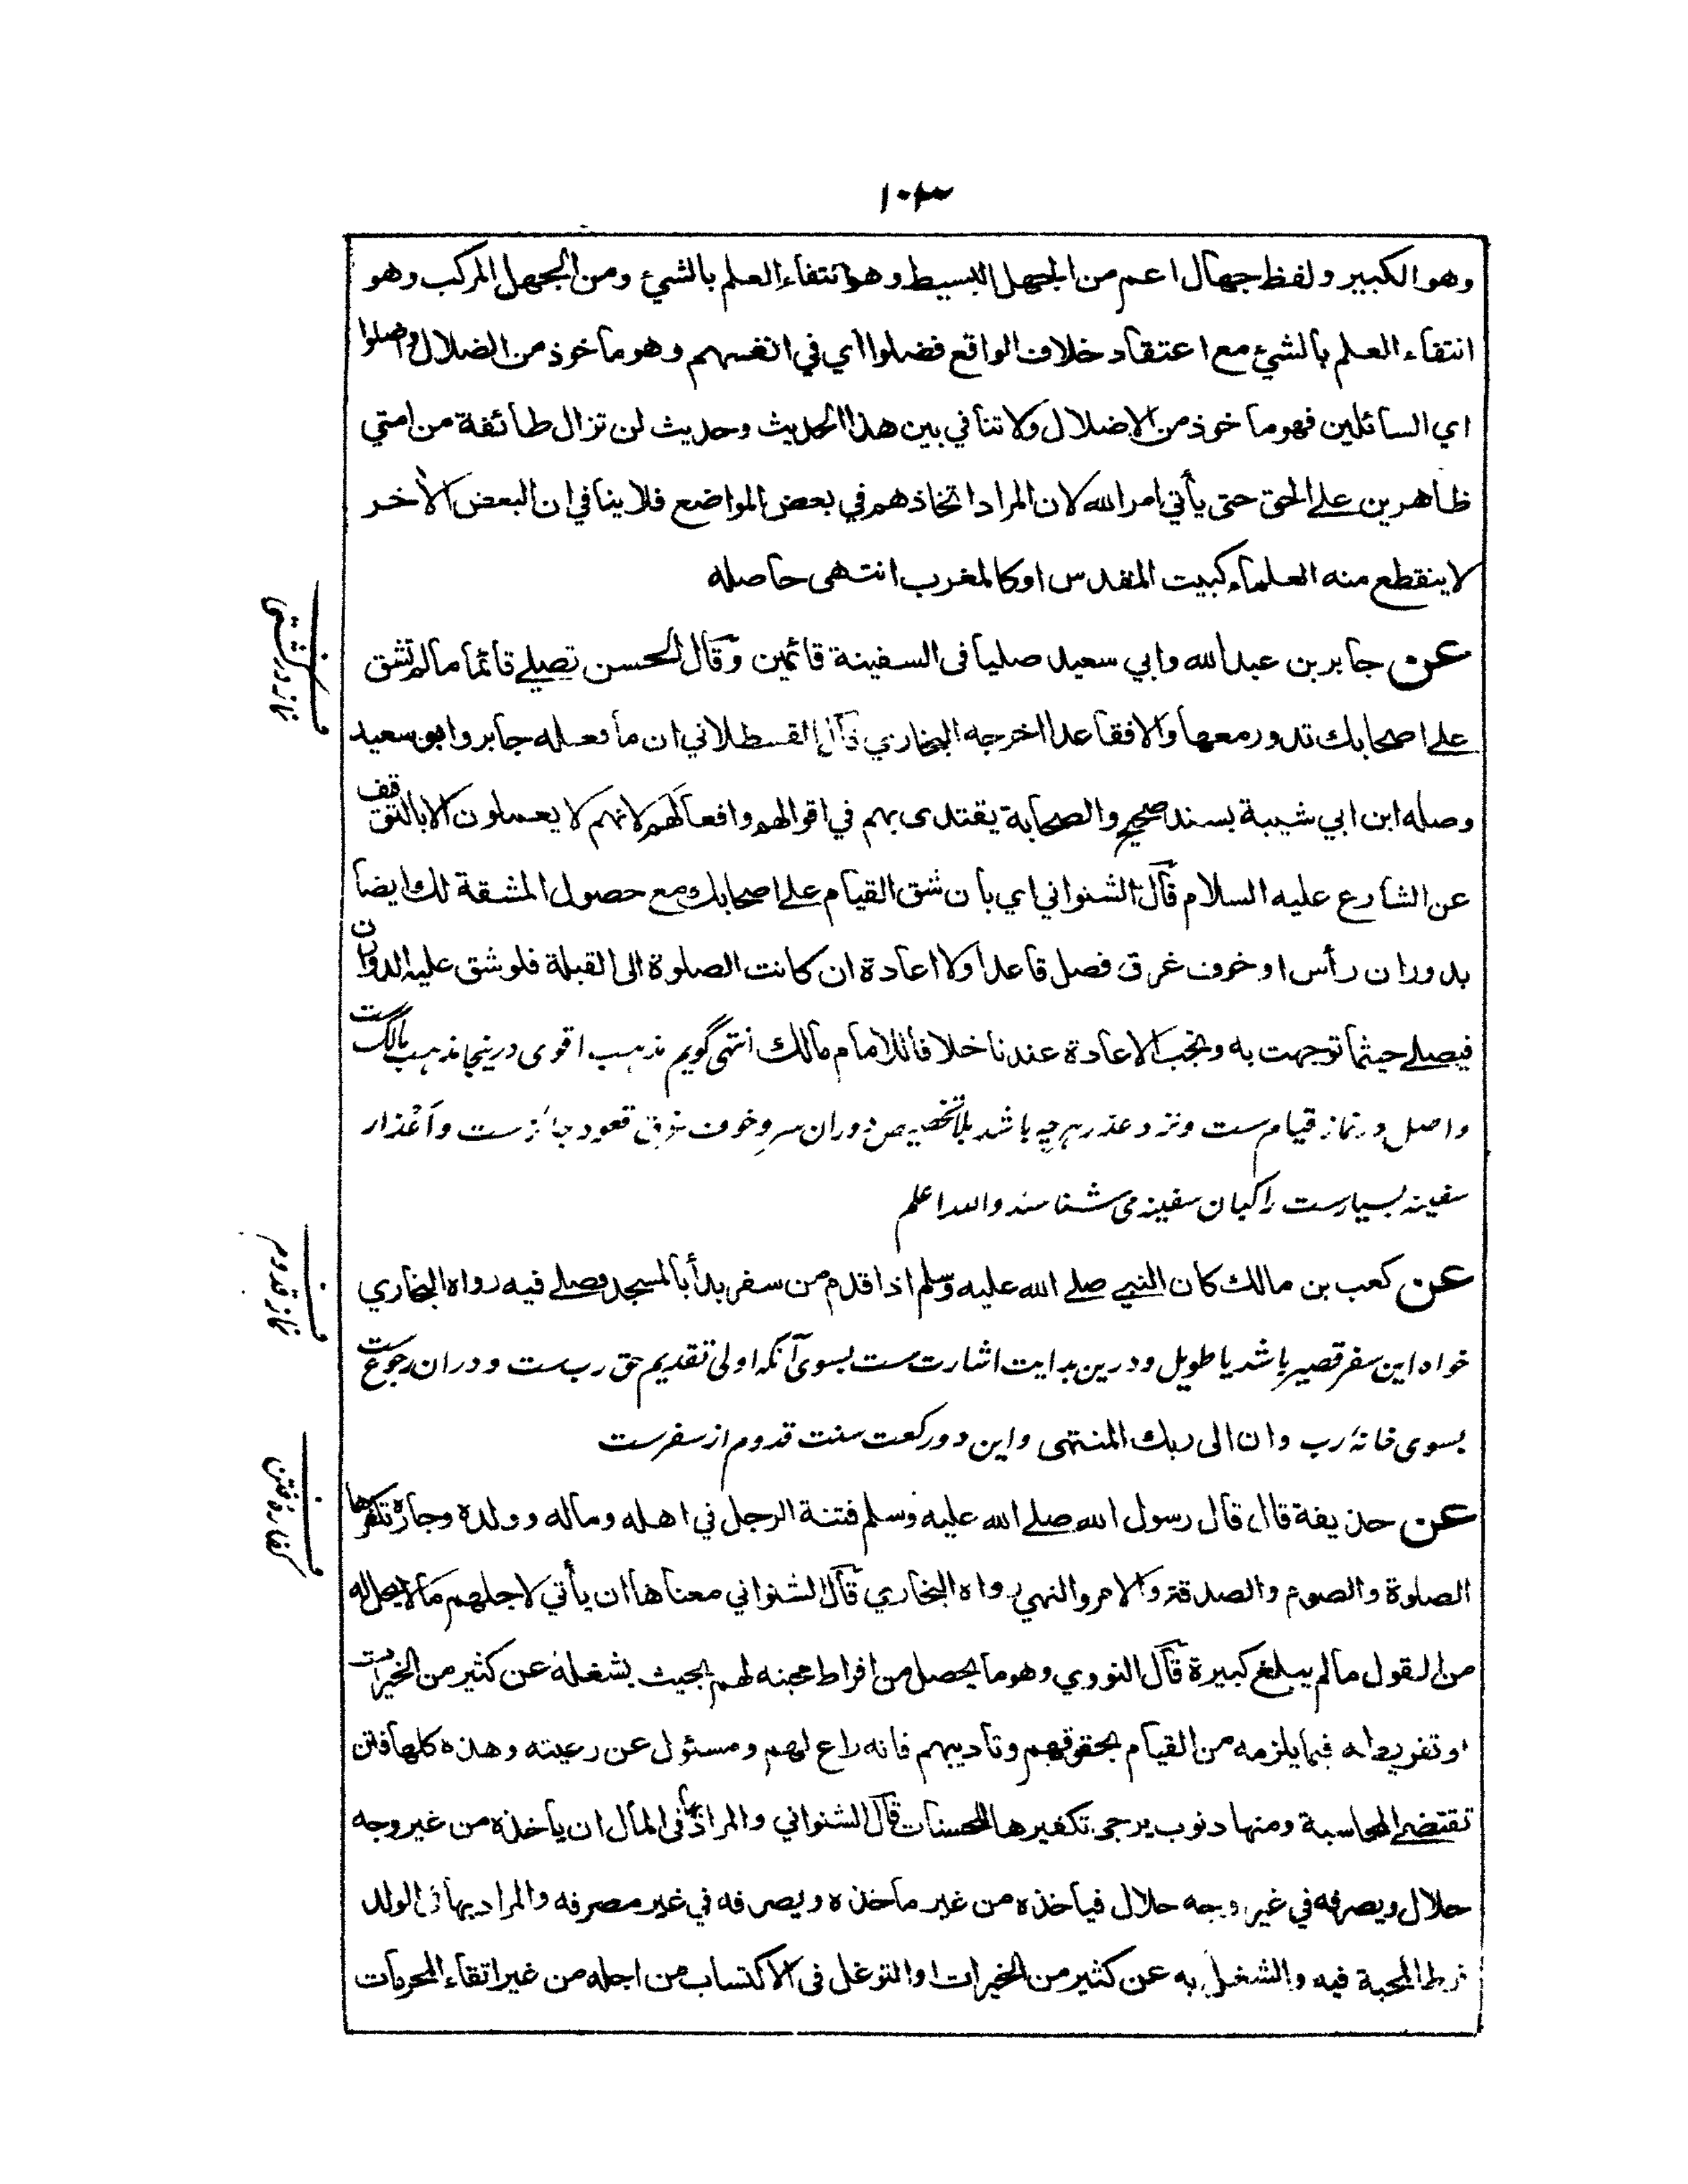 ١٠٣
وهو الكبير ولفظ جهال اعم من الجهل البسيط وهو انتفاء العلم بالشئ ومن الجهل المركب وهو
انتفاء العلم بالشئ مع اعتقاد خلاف الواقع فضلوا اي في انفسهم وهو ماخوذ من الضلال واضلوا
اي السائلين فهو ماخوذ من الاضلال ولا تنافي بين هذا الحديث وحديث لن تزال طائفة من امتي
ظاهرين على الحق حتى يأتي امر الله لان المراد اتخاذهم في بعض المواضع فلا ينافي ان البعض الأخر
لا ينقطع منه العلماء كبيت المقدس او كالمغرب انتهى حاصله
نماز در كشتى
عن جابر بن عبد الله وابي سعيد صليا فى السفينة قائمين وقال الحسن تصلے قائما مالم تشق
علے اصحابك تدور معها والا فقاعدا اخرجه البخاري قال القسطلاني ان ما فعله جابر وابو سعيد
وصله ابن ابي شيبة بسند صحيح والصحابة يقتدى بهم في اقوالهم وافعالهم لانهم لا يعملون الا بالتوقف
عن الشارع عليه السلام قال الشنواني اي بان شق القيام علے اصحابك مع حصول المشقة لك ايضا
بدوران رأس او خوف غرق فصل قاعدا ولا اعادة ان كانت الصلوة الى القبلة فلو شق عليه الدوران
فيصلے حيثما توجهت به وتجب الاعادة عندنا خلافا للامام مالك انتهى گويم مذهب اقوى درينجا مذهب مالك ست
واصل در نماز قيام ست ونزد عذر هر چه باشد بلا تخصيص دوران سر وخوف غرق قعود جائز ست واعذار
سفينه بسيارست راكبان سفينه مى شناسند والله اعلم
نماز قدوم
عن كعب بن مالك كان النبي صلے الله عليه وسلم اذا قدم من سفر بدأ بالمسجد فصلے فيه رواه البخاري
خواه اين سفر قصير باشد يا طويل ودرين بدايت اشارت ست بسوى آنكه اولى تقديم حق رب ست ودران رجوع ست
بسوى خانه رب وان الى ربك المنتهى واين دو ركعت سنت قدوم از سفرست
كفاره فتن
عن حذيفة قال قال رسول الله صلے الله عليه وسلم فتنة الرجل في اهله وماله وولده وجاره تكفرها
الصلوة والصوم والصدقة والامر والنهي رواه البخاري قال الشنواني معناها ان يأتي لاجلهم مالا يحل له
من القول مالم يبلغ كبيرة قال النووي وهو ما يحصل من افراط محبته لهم بحيث يشغله عن كثير من الخيرات
او تفريطه فيما يلزمه من القيام بحقوقهم وتاديبهم فانه راع لهم ومسئول عن رعيته وهذه كلها فتن
تقتضے المحاسبة ومنها ذنوب يرجى تكفيرها بالحسنات قال الشنواني والمراد بها فى المال ان ياخذه من غير وجه
حلال ويصرفه في غير وجه حلال فياخذه من غير ماخذه ويصرفه في غير مصرفه والمراد بها فى الولد
فرط المحبة فيه والشغل به عن كثير من الخيرات او التوغل فى الاكتساب من اجله من غير اتقاء المحرمات